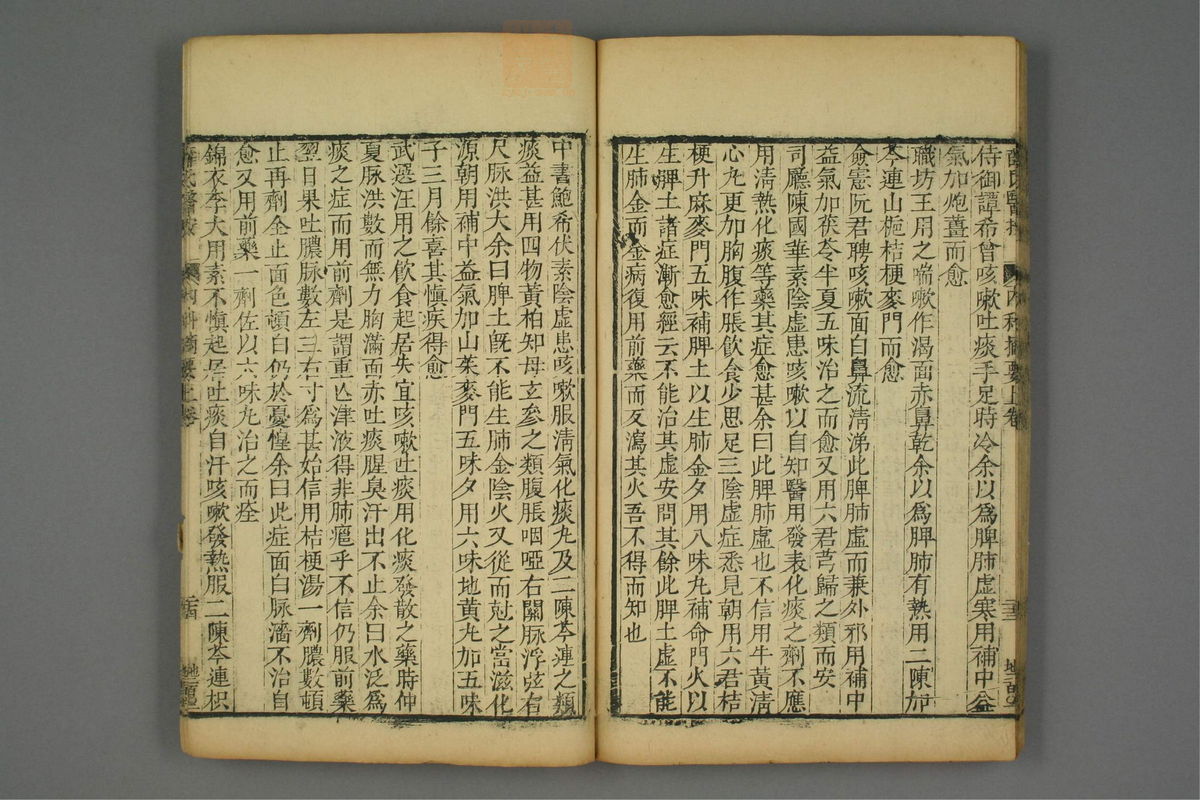 薛氏醫按 內科摘要上卷
侍御譚希曾咳嗽吐痰手足時冷余以爲脾肺虛寒用補中益
氣加炮薑而愈
職坊王用之喘嗽作渴面赤鼻乾余以爲脾肺有熱用二陳加
芩連山梔桔梗麥門而愈
僉憲阮君聘咳嗽面白鼻流淸涕此脾肺虛而兼外邪用補中
益氣加茯苓半夏五味治之而愈又用六君芎歸之類而安
司廳陳國華素陰虛患咳嗽以自知醫用發表化痰之劑不應
用淸熱化痰等藥其症愈甚余曰此脾肺虛也不信用牛黃淸
心丸更加胸腹作脹飮食少思足三陰虛症悉見朝用六君桔
梗升麻麥門五味補脾土以生肺金夕用八味丸補命門火以
生脾土諸症漸愈經云不能治其虛安問其餘此脾土虛不能
生肺金而金病復用前藥而反瀉其火吾不得而知也
中書鮑希伏素陰虛患咳嗽服淸氣化痰丸及二陳芩連之類
痰益甚用四物黃柏知母玄參之類腹脹咽啞右關脉浮弦右
尺脉洪大余曰脾土旣不能生肺金陰火又從而尅之當滋化
源朝用補中益氣加山茱麥門五味夕用六味地黃丸加五味
子三月餘喜其愼疾得愈
武選汪用之飮食起居失宜咳嗽吐痰用化痰發散之藥時仲
夏脉洪數而無力胸滿面赤吐痰腥臭汗出不止余曰水泛爲
痰之症而用前劑是謂重亾津液得非肺癰乎不信仍服前藥
翌日果吐膿脉數左三右寸爲甚始信用桔梗湯一劑膿數頓
止再劑全止面色頓白仍於憂惶余曰此症面白脉濇不治自
愈又用前藥一劑佐以六味丸治之而痊
錦衣李大用素不愼起居吐痰自汗咳嗽發熱服二陳芩連枳
薛氏醫按 內科摘要上卷